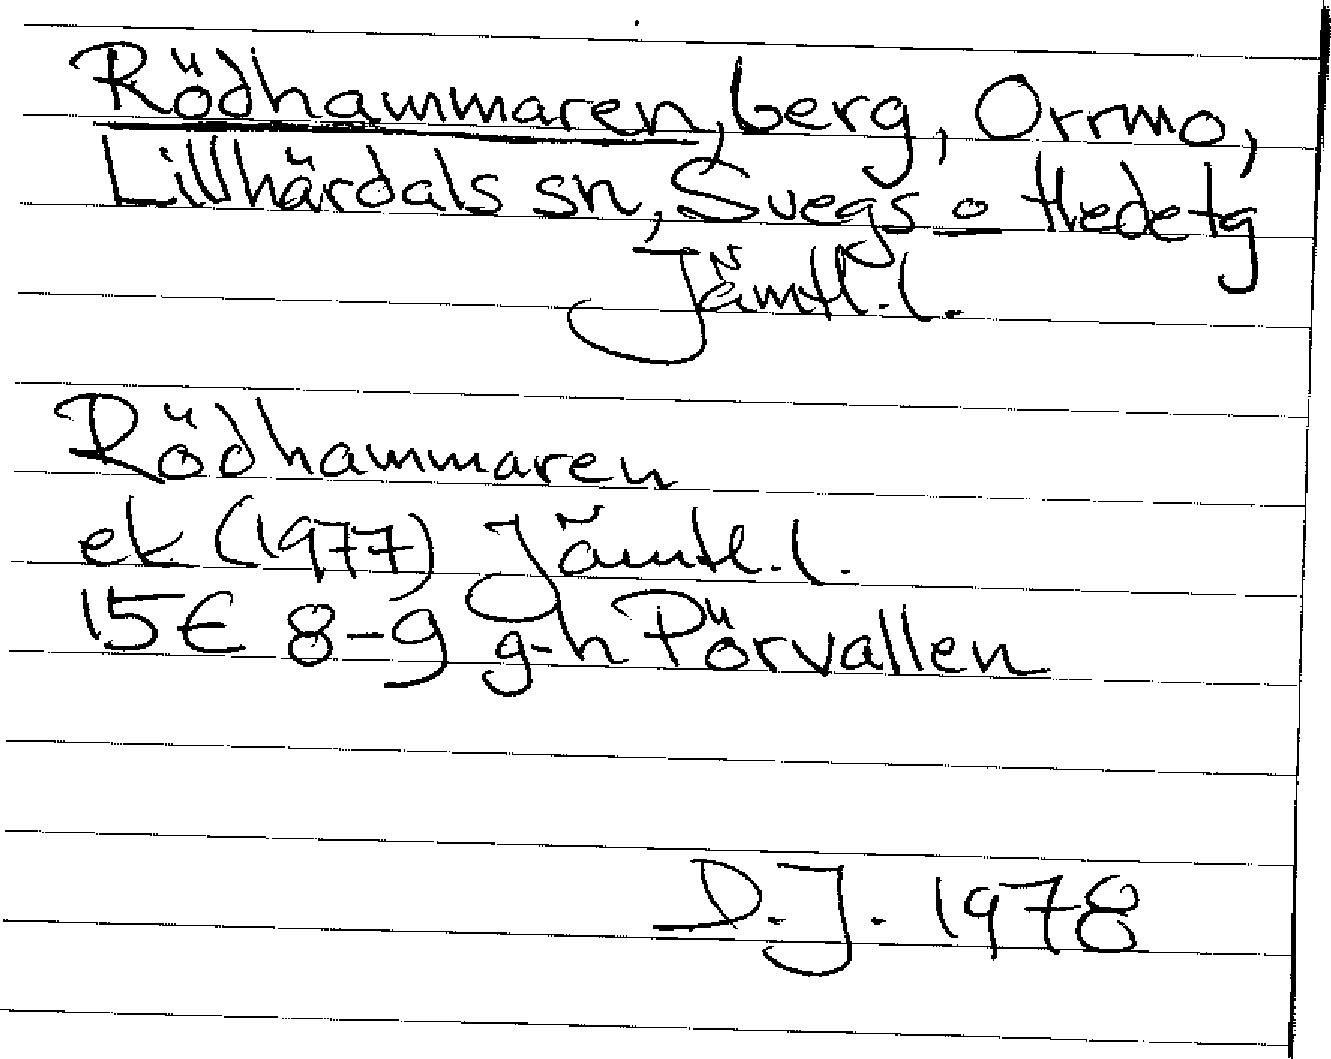 Rödhammaren, berg, Orrmo,
Lillhärdals sn, Svegs o Hedetg
Jämtl. l.
Rödhammaren
ek (1977) Jämtl. l.
15E 8-9 g-h Pörvallen
D.J. 1978